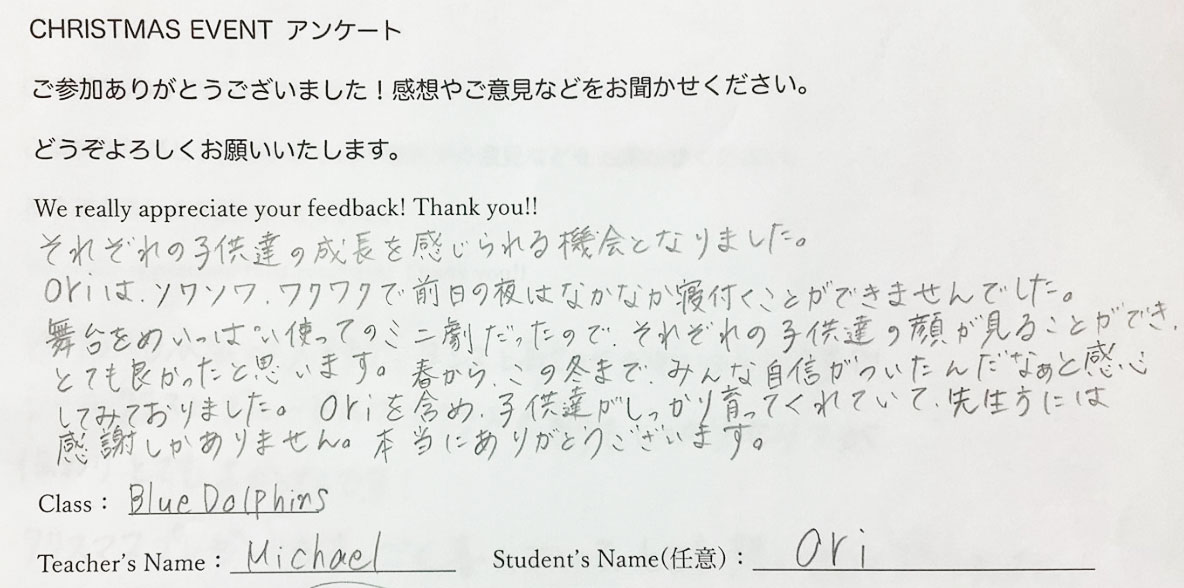 CHRISTMAS EVENT アンケート
ご参加ありがとうございました！感想やご意見などをお聞かせください。
どうぞよろしくお願いいたします。
We really appreciate your feedback! Thank you!!
それぞれの子供達の成長を感じられる機会となりました。
Oriは、ソワソワ、ワクワクで前日の夜はなかなか寝付くことができませんでした。
舞台をめいっぱい使ってのミニ劇だったので、それぞれの子供達の顔が見ることができ、
とても良かったと思います。春から、この冬まで、みんな自信がついたんだなぁと感心
してみておりました。Oriを含め、子供達がしっかり育ってくれていて、先生方には
感謝しかありません。本当にありがとうございます。
Class： Blue Dolphins
Teacher's Name： Michael Student's Name(任意)： Ori